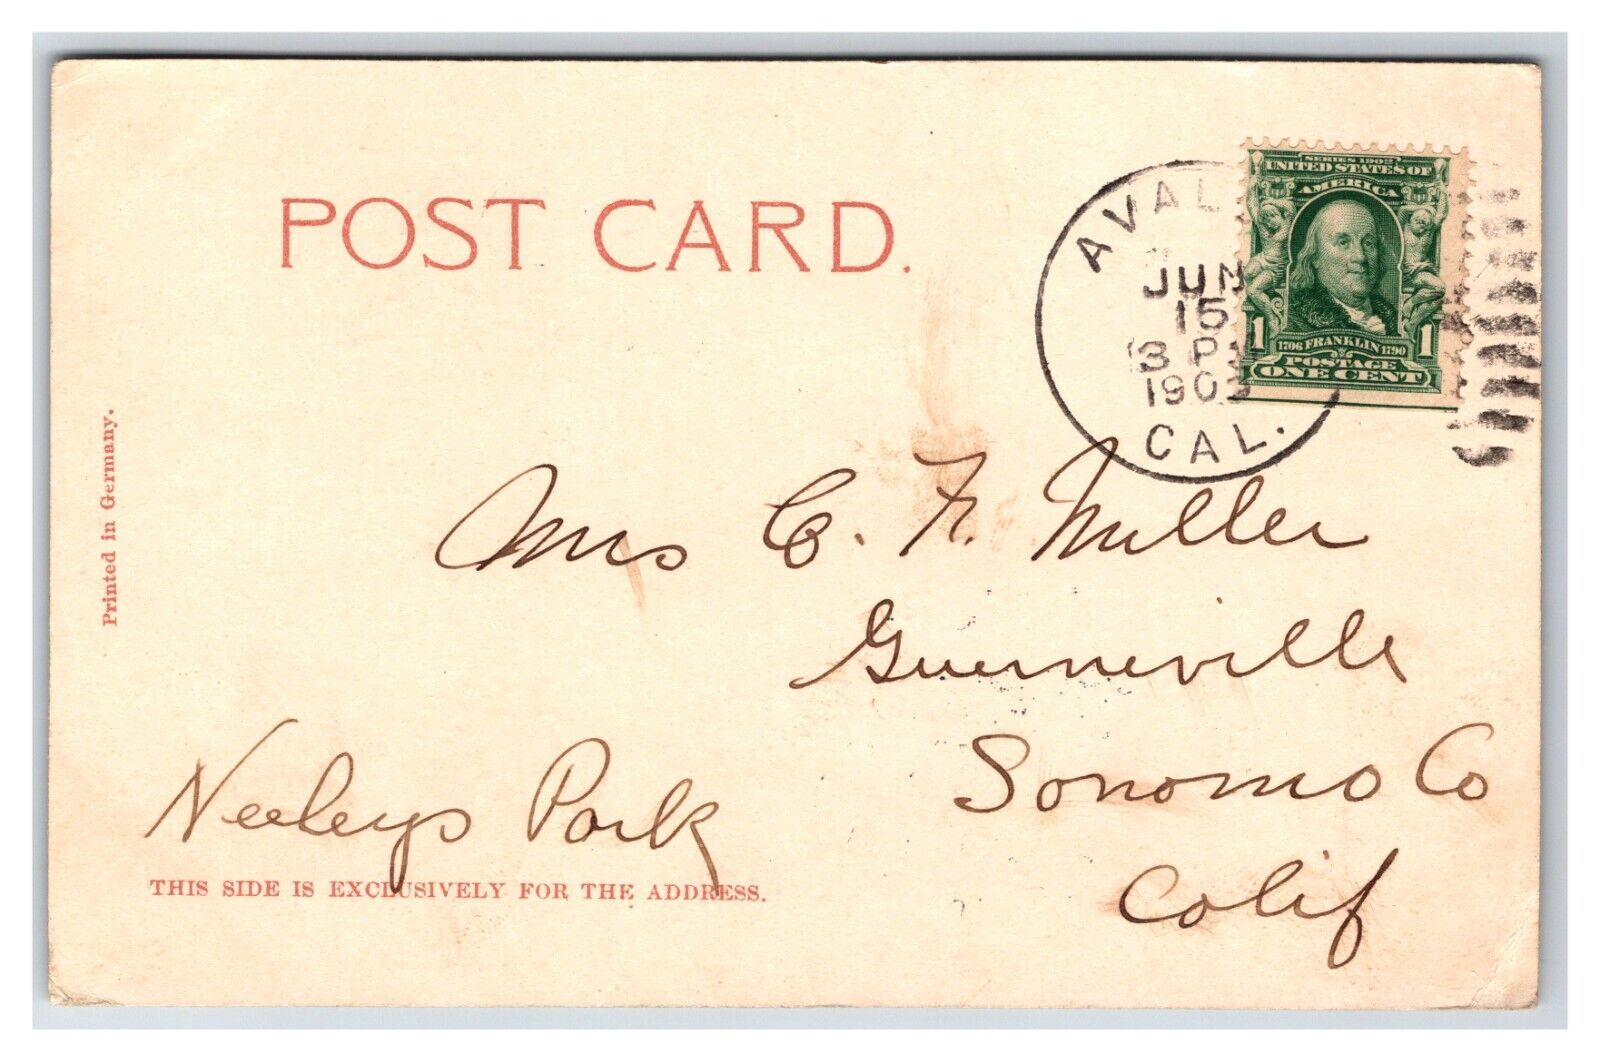 POST CARD.
SERIES 1902
UNITED STATES OF
AMERICA
1 1706 FRANKLIN 1790 1
POSTAGE
ONE CENT
AVAL
JUN
15
3 P
190
CAL.
Printed in Germany.
Mrs C. F. Miller
Guerneville
Sonoma Co
Calif
Neeleys Park
THIS SIDE IS EXCLUSIVELY FOR THE ADDRESS.